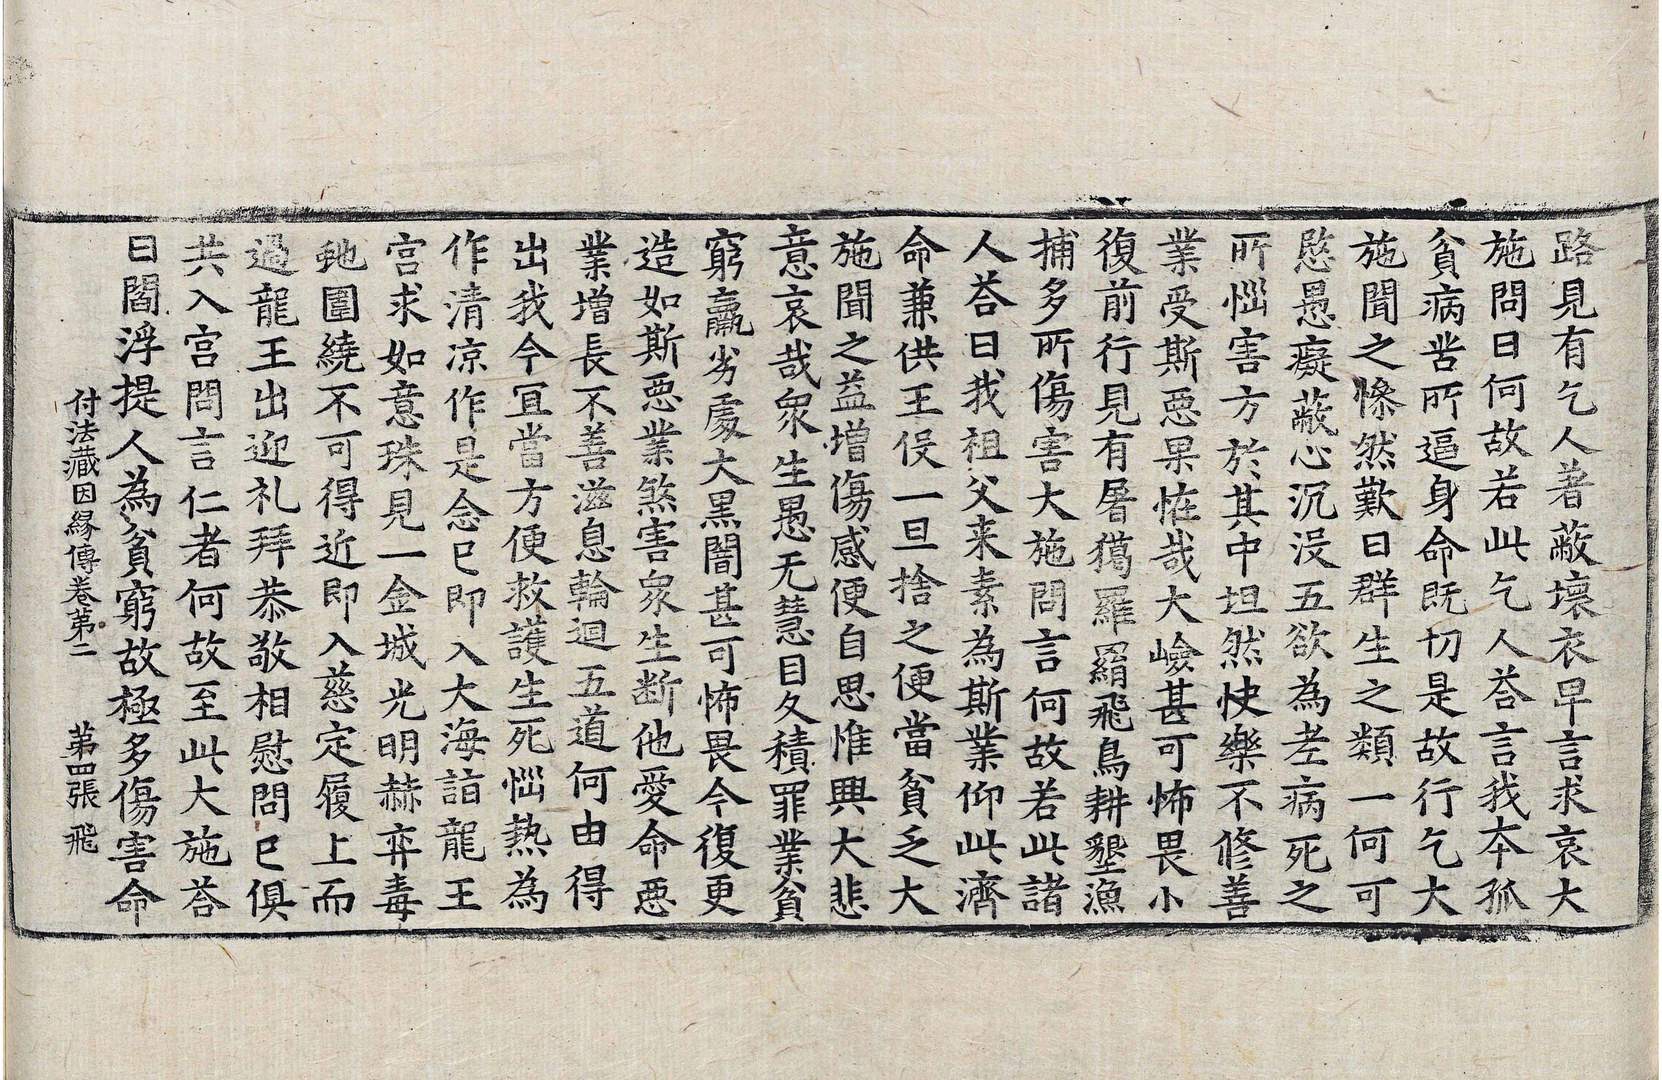 路見有乞人著蔽壞衣早言求哀大
施問曰何故若此乞人荅言我本孤
貧病苦所逼身命既切是故行乞大
施聞之慘然歎曰群生之類一何可
愍愚癡蔽心沉沒五欲為老病死之
所惱害方於其中坦然快樂不修善
業受斯惡果恠哉大嶮甚可怖畏小
復前行見有屠獦羅羂飛鳥耕墾漁
捕多所傷害大施問言何故若此諸
人荅曰我祖父来素為斯業仰此濟
命兼供王伇一旦捨之便當貧乏大
施聞之益增傷感便自思惟興大悲
意哀哉衆生愚无慧目久積罪業貧
窮羸劣處大黑闇甚可怖畏今復更
造如斯惡業煞害衆生断他愛命惡
業增長不善滋息輪迴五道何由得
出我今宜當方便救護生死惱熱為
作清凉作是念已即入大海詣龍王
宮求如意珠見一金城光明赫弈毒
虵圍繞不可得近即入慈定履上而
過龍王出迎礼拜恭敬相慰問已俱
共入宮問言仁者何故至此大施荅
曰閻浮提人為貧窮故極多傷害命
付法藏因緣傳卷第二　第四張　飛